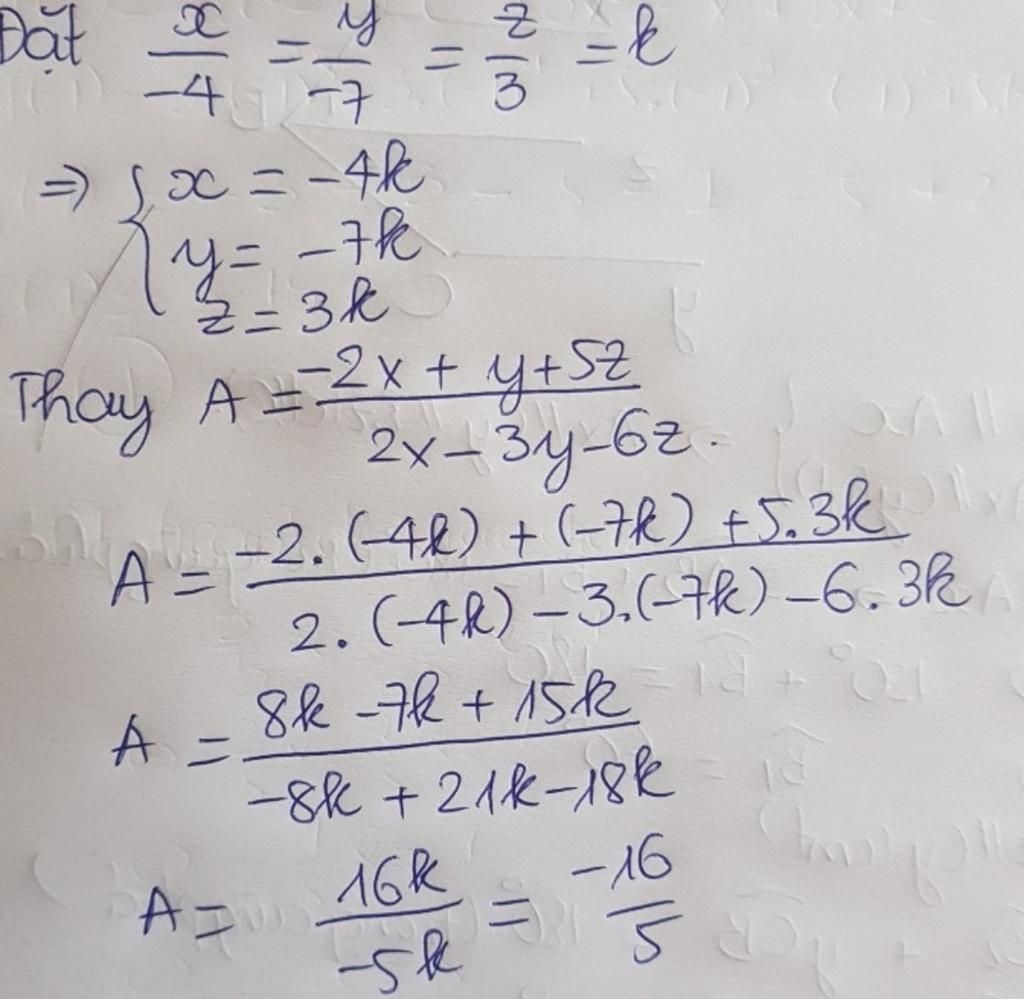 Đặt x/-4 = y/-7 = z/3 = k
=> { x = -4k
y = -7k
z = 3k
Thay A = -2x + y + 5z / 2x - 3y - 6z.
A = -2. (-4k) + (-7k) + 5.3k / 2. (-4k) - 3.(-7k) - 6. 3k
A = 8k - 7k + 15k / -8k + 21k - 18k
A = 16k / -5k = -16 / 5